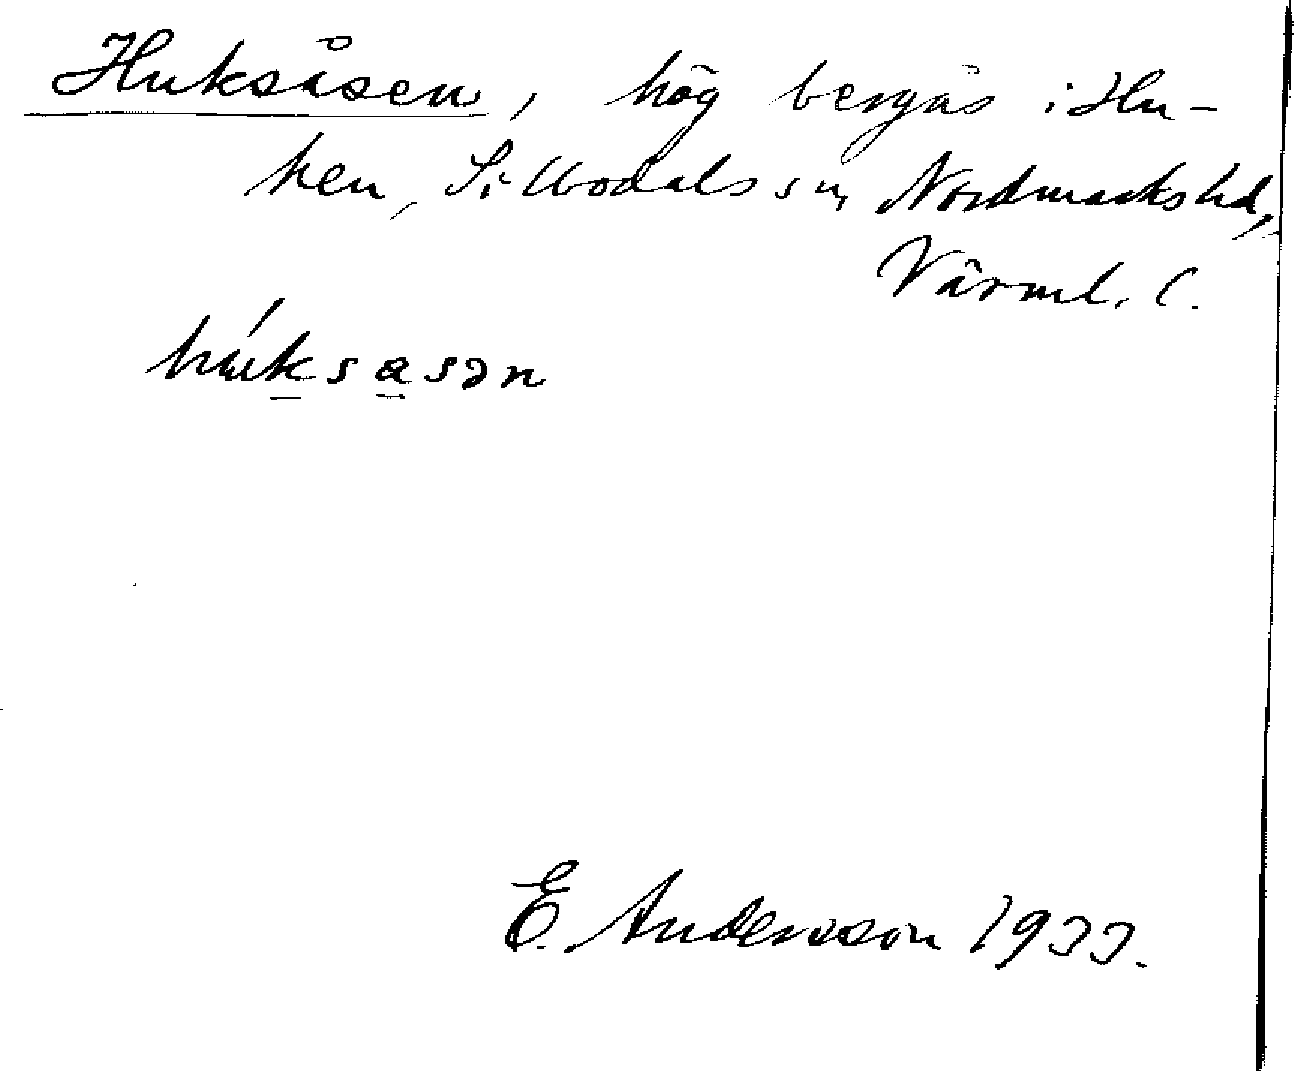 Huksåsen, hög bergås i Hu-
ken, Sillbodals sn, Nordmarks hd,
Värml. l.
húksasən
E. Andersson 1933.